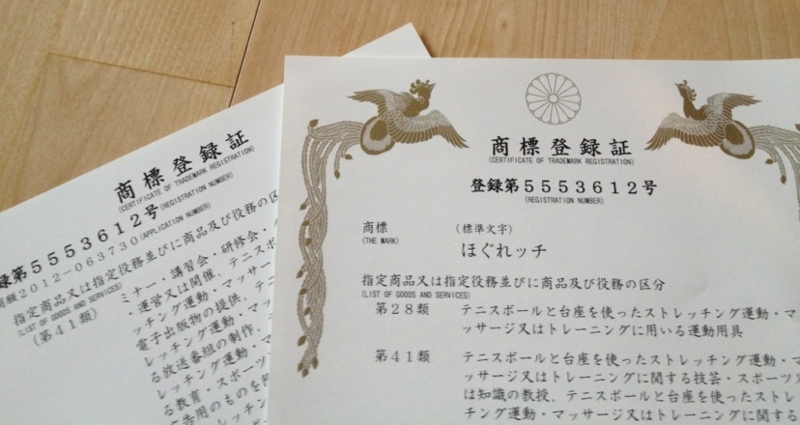 商標登録証
(CERTIFICATE OF TRADEMARK REGISTRATION)
登録第5553612号
(REGISTRATION NUMBER)
商標
(THE MARK)
(標準文字)
ほぐれッチ
指定商品又は指定役務並びに商品及び役務の区分
(LIST OF GOODS AND SERVICES)
第28類 テニスボールと台座を使ったストレッチング運動・マ
ッサージ又はトレーニングに用いる運動用具
第41類 テニスボールと台座を使ったストレッチング運動・マ
ッサージ又はトレーニングに関する技芸・スポーツ
は知識の教授，テニスボールと台座を使ったストレ
チング運動・マッサージ又はトレーニングに関する
商標登録証
(CERTIFICATE OF TRADEMARK REGISTRATION)
録第5553612号(REGISTRATION NUMBER)
商願2012-063730(APPLICATION NUMBER)
指定商品又は指定役務並びに商品及び役務の区分
(LIST OF GOODS AND SERVICES)
(第41類)
ミナー・講習会・研修会・
・運営又は開催，テニスボ
ッチング運動・マッサー
電子出版物の提供，テニ
レッチング運動・マッ
る放送番組の制作，
レッチング運動・マ
る教育・スポーツ
告用のものを除
レッチング